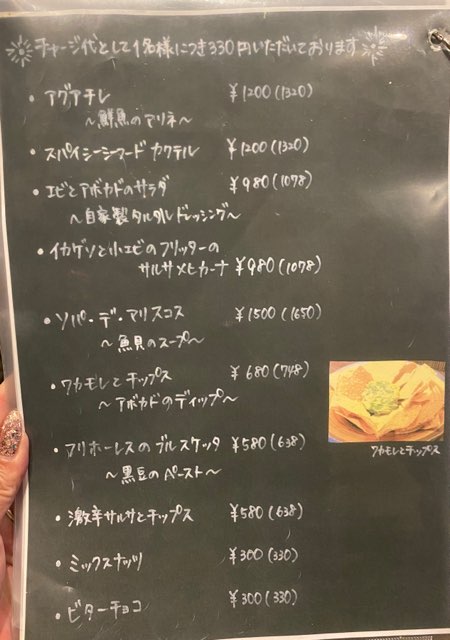 チャージ代として1名様につき330円いただいております
・アグアチレ ¥1200(1320)
〜鮮魚のマリネ〜
・スパイシーシーフードカクテル ¥1200(1320)
・エビとアボカドのサラダ ¥980(1078)
〜自家製タルタルドレッシング〜
・イカゲソと小エビのフリッターの
サルサメヒカーナ ¥980(1078)
・ソパ・デ・マリスコス ¥1500(1650)
〜魚貝のスープ〜
・ワカモレとチップス ¥680(748)
〜アボカドのディップ〜
ワカモレとチップス
・フリホーレスのブルスケッタ ¥580(638)
〜黒豆のペースト〜
・激辛サルサとチップス ¥580(638)
・ミックスナッツ ¥300(330)
・ビターチョコ ¥300(330)